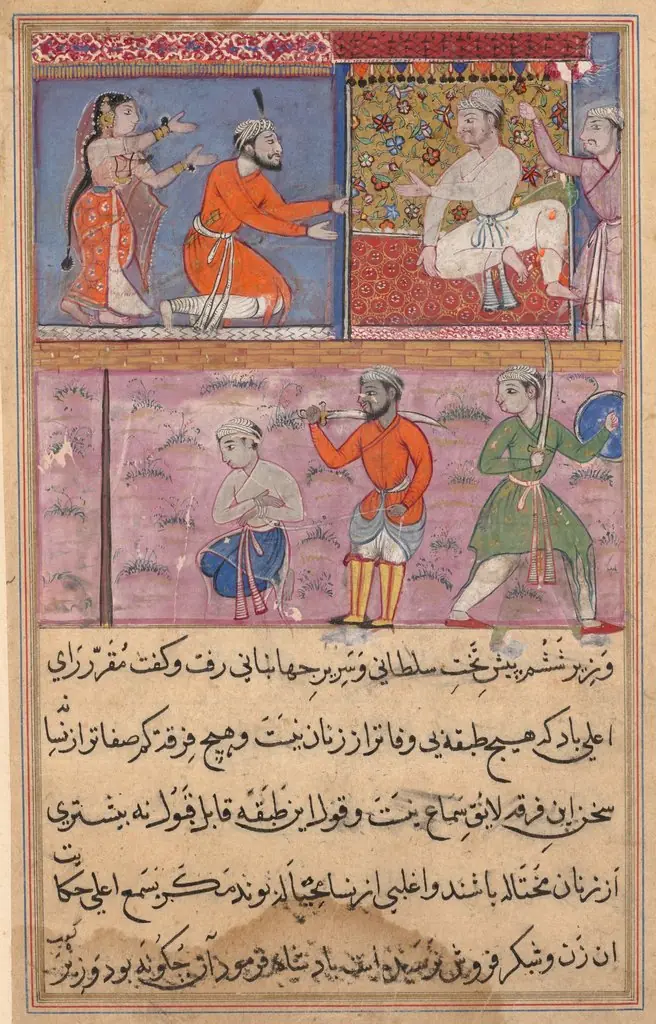 وَزیرِ ششُم پیشِ تختِ سلطانی وَسَریرِ جهانبانی رفت وکفت مُقرّر رَایِ
اعلی باد که هیچ طبقه یی وفاتر از زنان نیست وهیچ فرقة کم صفاتر از نسا
سخن این فرقه لایق سَماع نیست وقول این طبقَه قابل قبُول نه بیشتری
از زنان مُحتَاله باشند واغلبی از نسا مکر بسَمع اعلی حکایت
ان زَن وشکر فروش نرسیده است بادشاه فرمود آن چکونَه بود وَزیر